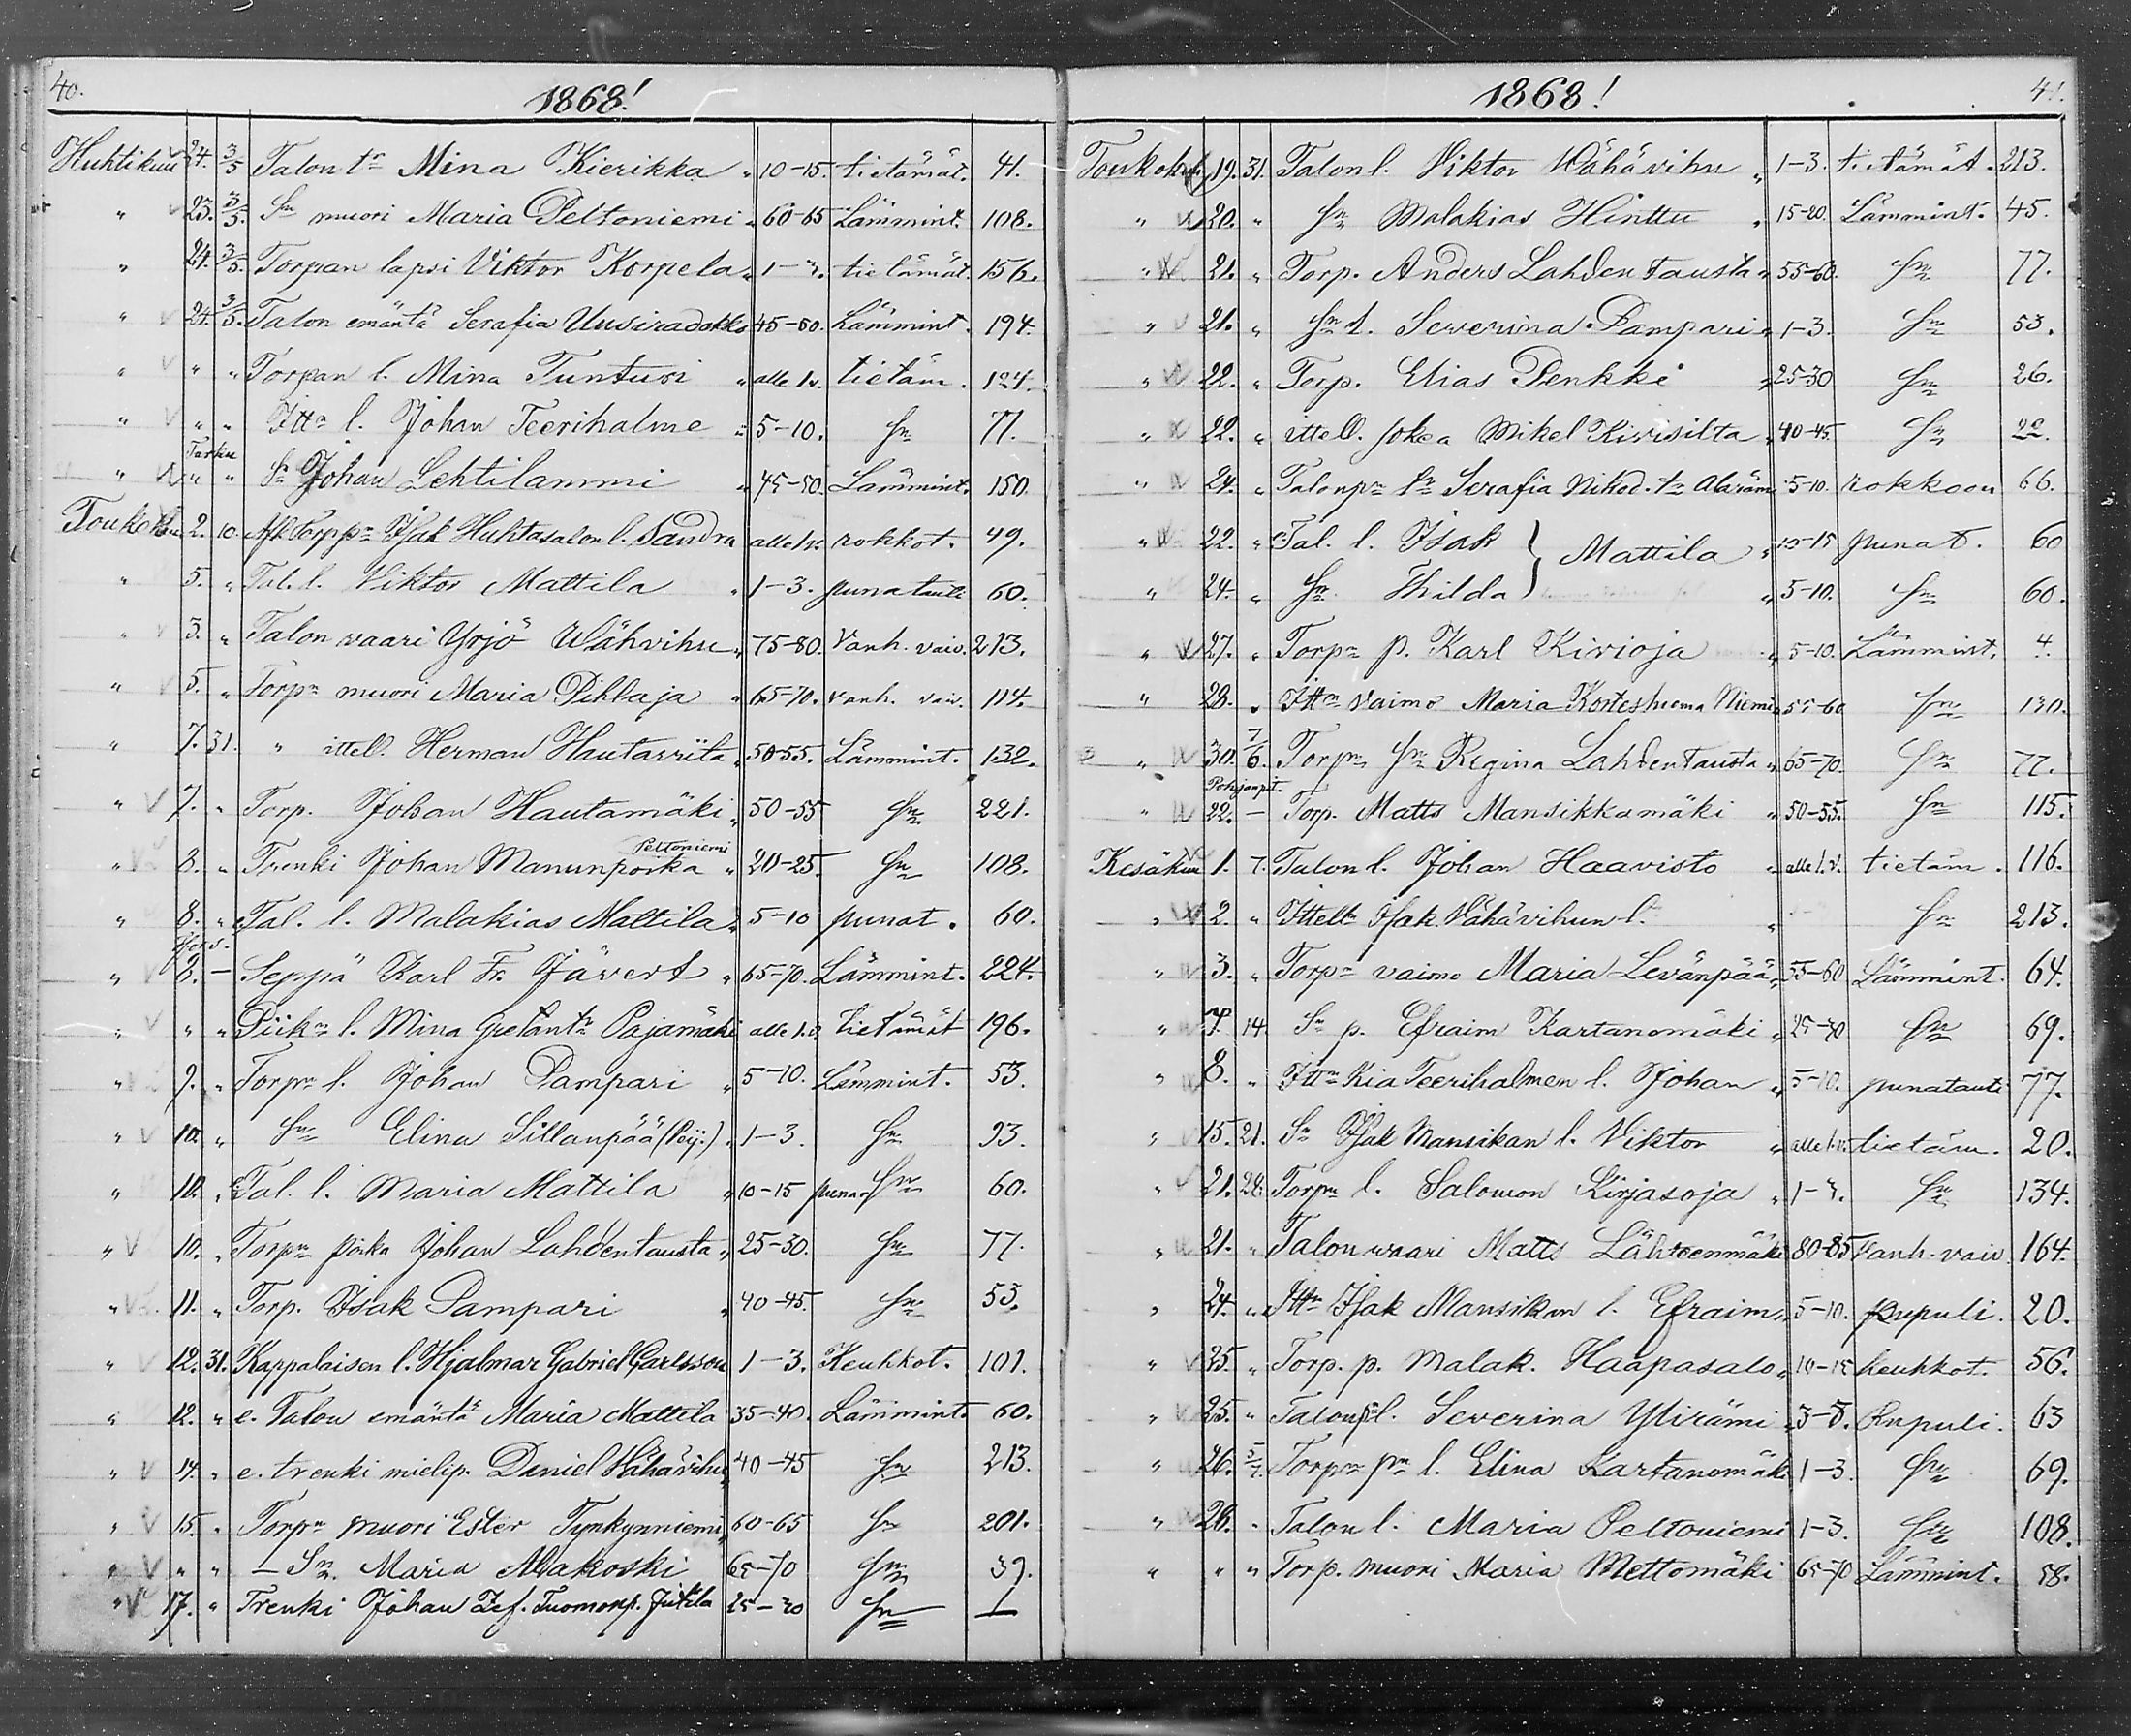 40.
1868!
Huhtikuu 24. 3/5 Talon tr Mina Kierikka " 10-15. tietämät. 41.
" 23. 3/5. Sn muori Maria Peltoniemi " 60-65 Lämmint. 108.
" 24. 3/5. Torpan lapsi Viktor Korpela " 1-3. tietämät. 156.
" 24. 3/5. Talon emäntä Serafia 45-50. Lämmint. 194.
" " " Torpan l. Mina Tunturi " alle 1 v. tietäm. 124.
" " " Ittn l. Johan Teerihalme " 5-10. Sn 77.
Turku
" " " Sn Johan Lehtilammi " 45-50. Lämmint. 150.
Toukokuu 2. 10. Isak Huhtasalon l. Sandra alle 1 v. rokkot. 49.
" 5. " Tal. l. Viktor Mattila " 1-3. punatauti 60.
" 3. " Talon vaari Yrjö Wähvihu " 75-80. Vanh. vaiv. 213.
" 5. " Torpn muori Maria Pihlaja " 65-70. vanh. vaiv. 114.
" 7. 31. " ittell. Herman Hautaviita " 50-55. Lämmint. 132.
" 7. " Torp. Johan Hautamäki " 50-55 Sn 221.
Peltoniemi
" 8. " Trenki Johan Manunpoika " 20-25. Sn 108.
" 8. " Tal. l. Malakias Mattila " 5-10 punat. 60.
" 8. – Seppä Karl Fr. Jävert " 65-70. Lämmint. 224.
" " " Piikn l. Mina Gretantr Pajamäki alle 1 v. tietämät 196.
" 9. " Torpn l. Johan Pampari " 5-10. Lämmint. 53.
" 10. " Sn Elina Sillanpää " 1-3. Sn 93.
" 10. " Tal. l. Maria Mattila " 10-15 punat Sn 60.
" 10. " Torpn poika Johan Lahdentausta " 25-30. Sn 77.
" 11. " Torp. Isak Pampari " 40-45. Sn 53.
" 12. 31. Kappalaisen l. Hjalmar Gabriel Carlsson 1-3. Keuhkot. 101.
" 12. " e. Talon emäntä Maria Mattila 35-40. Lämmint. 60.
" 14. " e. trenki mielip. Daniel Wähävihu 40-45 Sn 213.
" 15. " Torpn muori Ester Tynkynniemi " 60-65 Sn 201.
" " " – Sn. Maria Alakoski 65-70 Sn 39.
" 17. " Trenki Johan Zef. Tuomonp. Jutila 25-30 Sn –
1868!
41.
Toukokuu 19. 31. Talon l. Viktor Wähävihu " 1-3. tietämät. 213.
" 20. " Sn Malakias Hinttu " 15-20. Lämmint. 45.
" 21. " Torp. Anders Lahdentausta " 55-60. Sn 77.
" 21. " Sn l. Severina Pampari " 1-3. Sn 53.
" 22. " Torp. Elias Penkki " 25-30 Sn 26.
" 22. " ittell. sokea Mikel Kivisilta " 40-45. Sn 22.
" 24. " Talonpn tr Serafia Nikod. tr Alaräm 5-10. rokkoon 66.
" 22. " Tal. l. Isak } Mattila " 10-15 punat. 60
" 24. " Sn Thilda } " 5-10. Sn 60.
" 27. " Torpn p. Karl Kivioja " 5-10. Lämmint. 4.
" 28. " Ittn vaimo Maria Niemi 55-60 Sn 130.
" 30. 7/6. Torpn Sn Regina Lahdentausta " 65-70. Sn 77.
Pohjanpit.
" 22. – Torp. Matts Mansikkamäki " 50-55. Sn 115.
Kesäkuu 1. 7. Talon l. Johan Haavisto " alle 1. v. tietäm. 116.
" 2. " Ittelln Isak Wähävihun l. " Sn 213.
" 3. " Torpn vaimo Maria Levänpää " 55-60 Lämmint. 64.
" 7. 14. Sn p. Efraim Kartanomäki " 25-30 Sn 69.
" 8. " Ittn Kia Teerihalmen l. Johan " 5-10. punatauti 77.
" 15. 21. Sn Isak Mansikan l. Viktor " alle 1. v. tietäm. 20.
" 21. 28. Torpn l. Salomon Kirjasoja " 1-3. Sn 134.
" 21. " Talon vaari Matts Lähteenmäki 80-85 Vanh. vaiv. 164.
" 24. " Ittn Isak Mansikan l. Efraim " 5-10. Rupuli. 20.
" 25. " Torp. p. Malak. Haapasalo " 10-15 keuhkot. 56.
" 25. " Talonpl. Severina Ylirämi " 3-5. Rupuli. 63
" 26. 5/7. Torpn pn l. Elina Kartanomäki 1-3. Sn 69.
" 26. " Talon l. Maria Peltoniemi 1-3. Sn 108.
" " " Torp. muori Maria Mettomäki 65-70 Lämmint. 58.